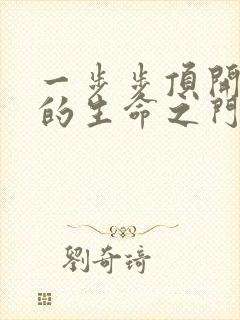 一步步頂開
的生命之門
劉奇琦